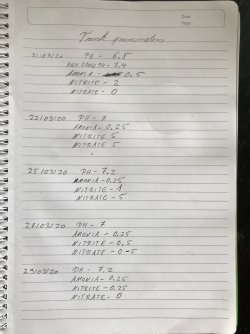 Date:
Page:
Tank parameters
21/03/20 PH - 6.8
HIGH RANGE PH - 7.4
AMONIA - 0.5
NITRITE - 2
NITRATE - 0
22/03/20 PH - 7
AMONIA - 0.25
NITRITE 5
NITRATE 5
25/03/20 PH - 7.2
AMONIA - 0.25
NITRITE - 1
NITRATE - 5
27/03/20 PH - 7
AMONIA - 0.25
NITRITE - 0.5
NITRATE - 0-5
29/03/20 PH - 7.2
AMONIA - 0.25
NITRITE - 0.25
NITRATE - 0